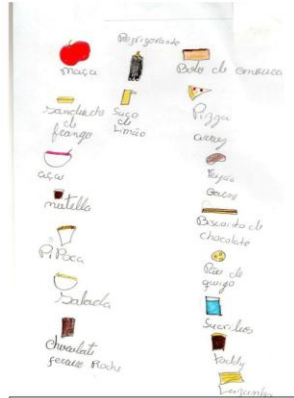 Refrigerante
maçã
Bolo de cenoura
Sanduiche
de
frango
Suco
de
Limão
Pizza
arroz
açai
Feijão
nutella
Biscoito de
chocolate
PiPoca
Pão de
queijo
Salada
Sucrilhos
chocolate
ferrero Roche
Toddy